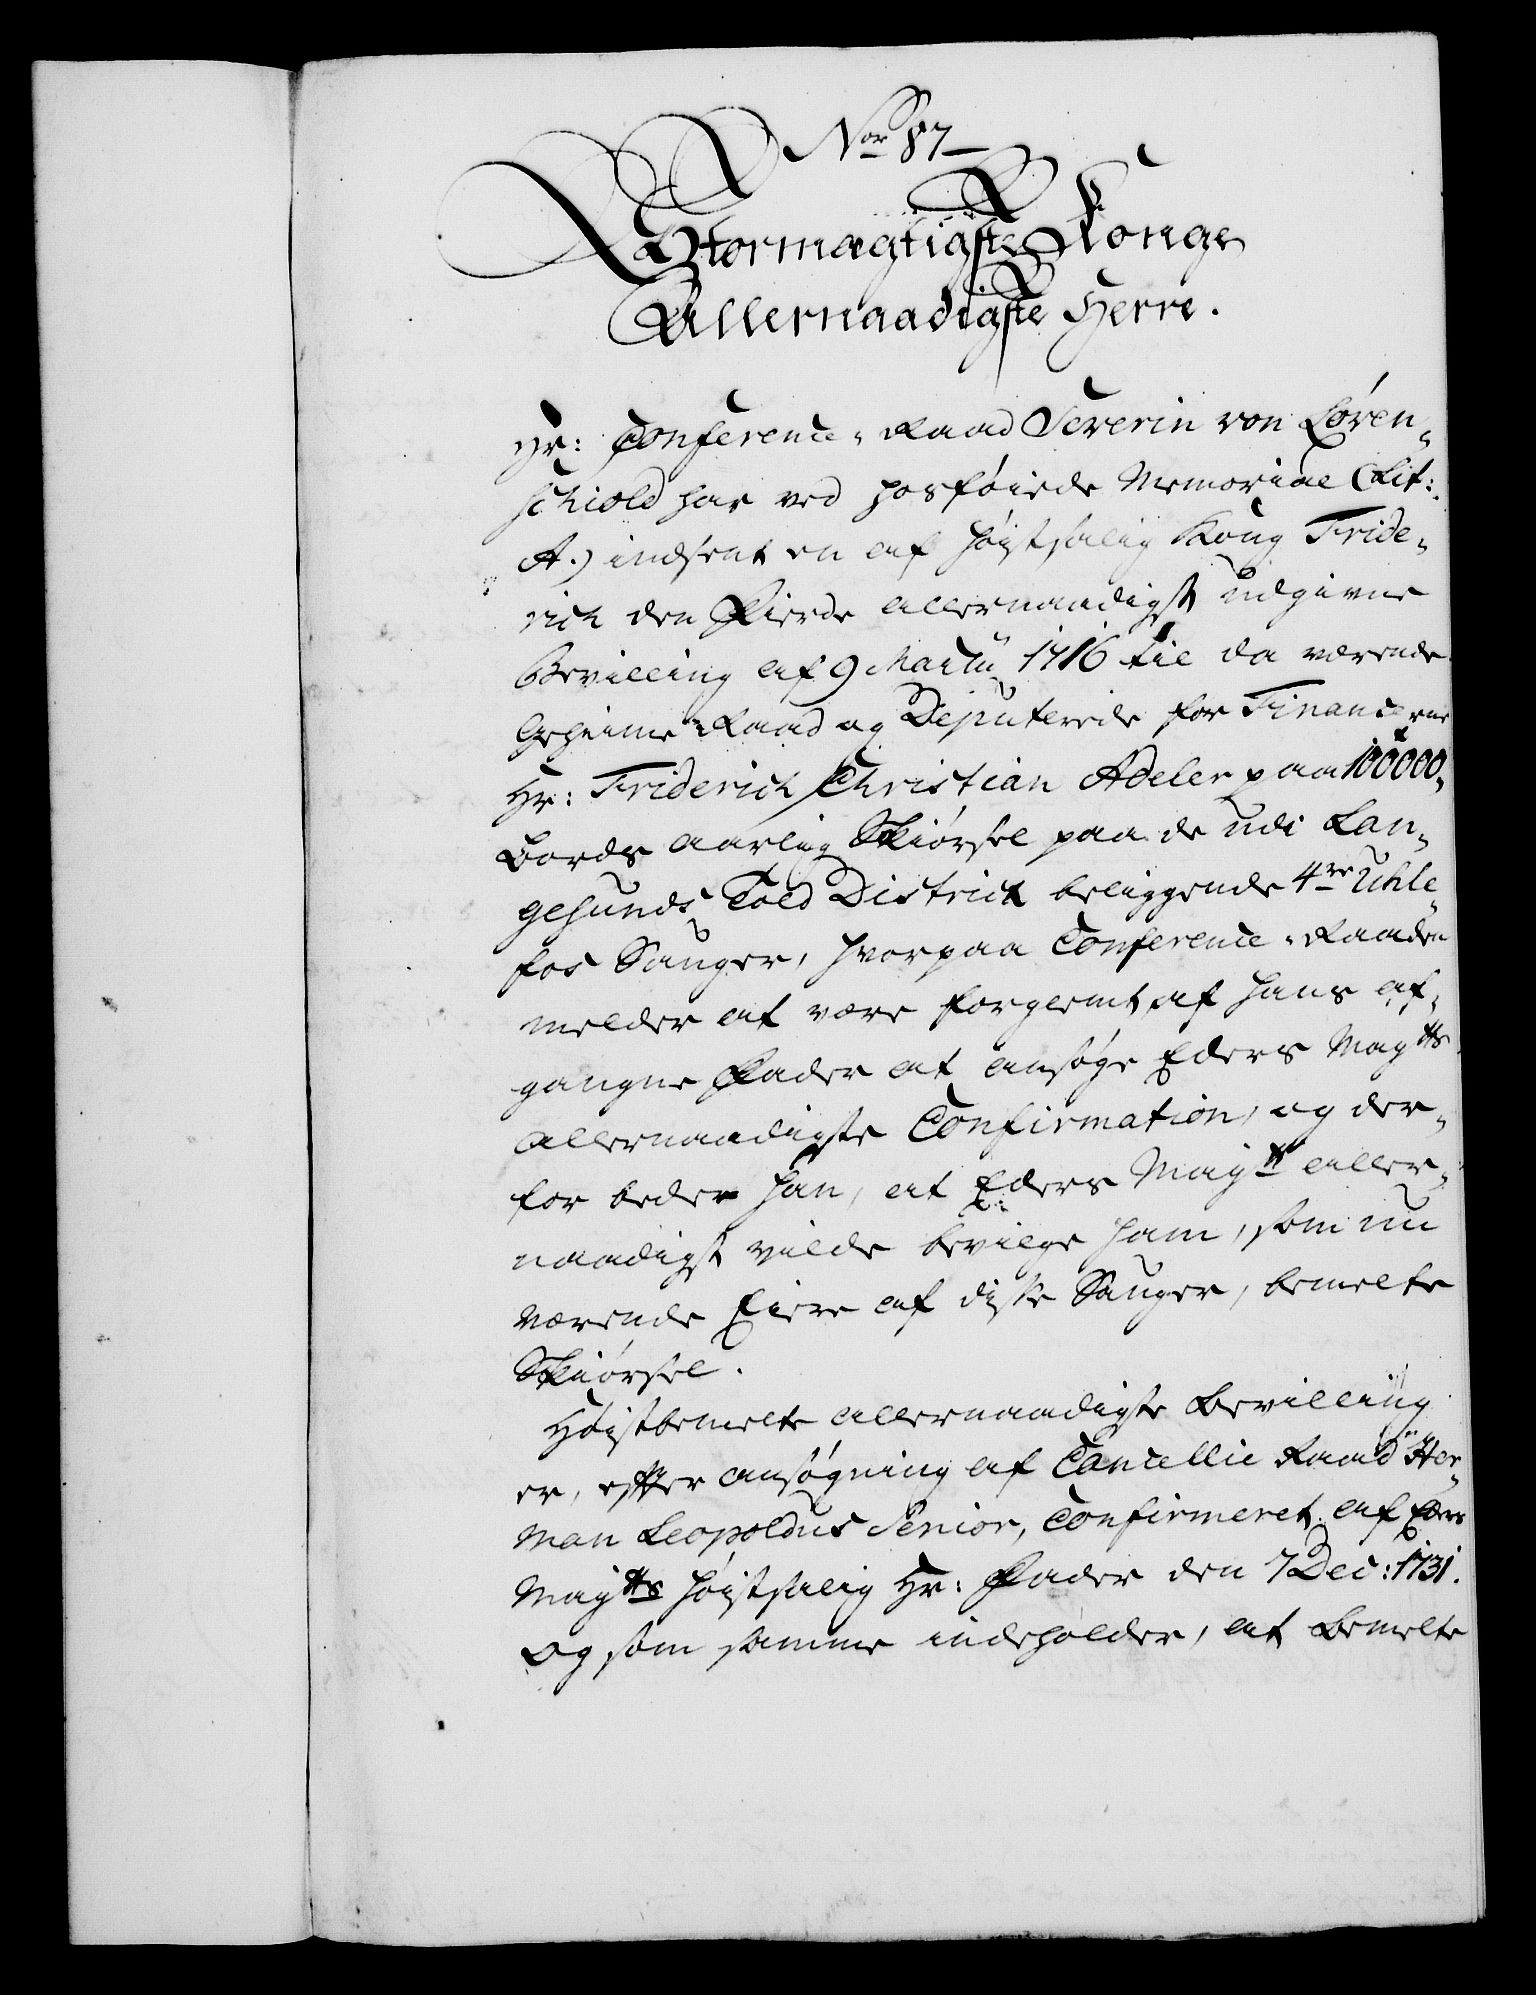 Nor 87
Stormægtigste Konge
Allernaadigste Herre.
Hr: Conference-Raad Severin von Løven-
schiold har ved hosføiede Memorial (Lit:
A.) indsent en af høistsalig Kong Fride-
rich den Fierde allernaadigst udgivne
Bevilling af 9 Martii 1716 til da værende
Geheime Raad og Deputerede for Financerne
Hr: Friderich Christian Adeler paa 100000
Bords aarlig Skiørsel paa de udi Lan-
gesunds Told District beliggende 4re Uhle-
fos Sauger, hvorpaa Conference-Raaden
melder at være forglemt af hans af-
gangne Fader at ansøge Eders Maytts
allernaadigste Confirmation, og der-
for beder han, at Eders Maytt aller-
naadigst vilde bevilge ham, som nu
værende Eiere af diste Sauger, bemelte
Skiørsel.
Høistbemelte allernaadigste Bevilling
er, efter ansøgning af Cancellie Raad Her-
man Leopoldus Senior, Confirmeret af Eders
Maytts høistsalig Hr: Fader den 7 Dec: 1731.
og som samme indeholder, at bemelte